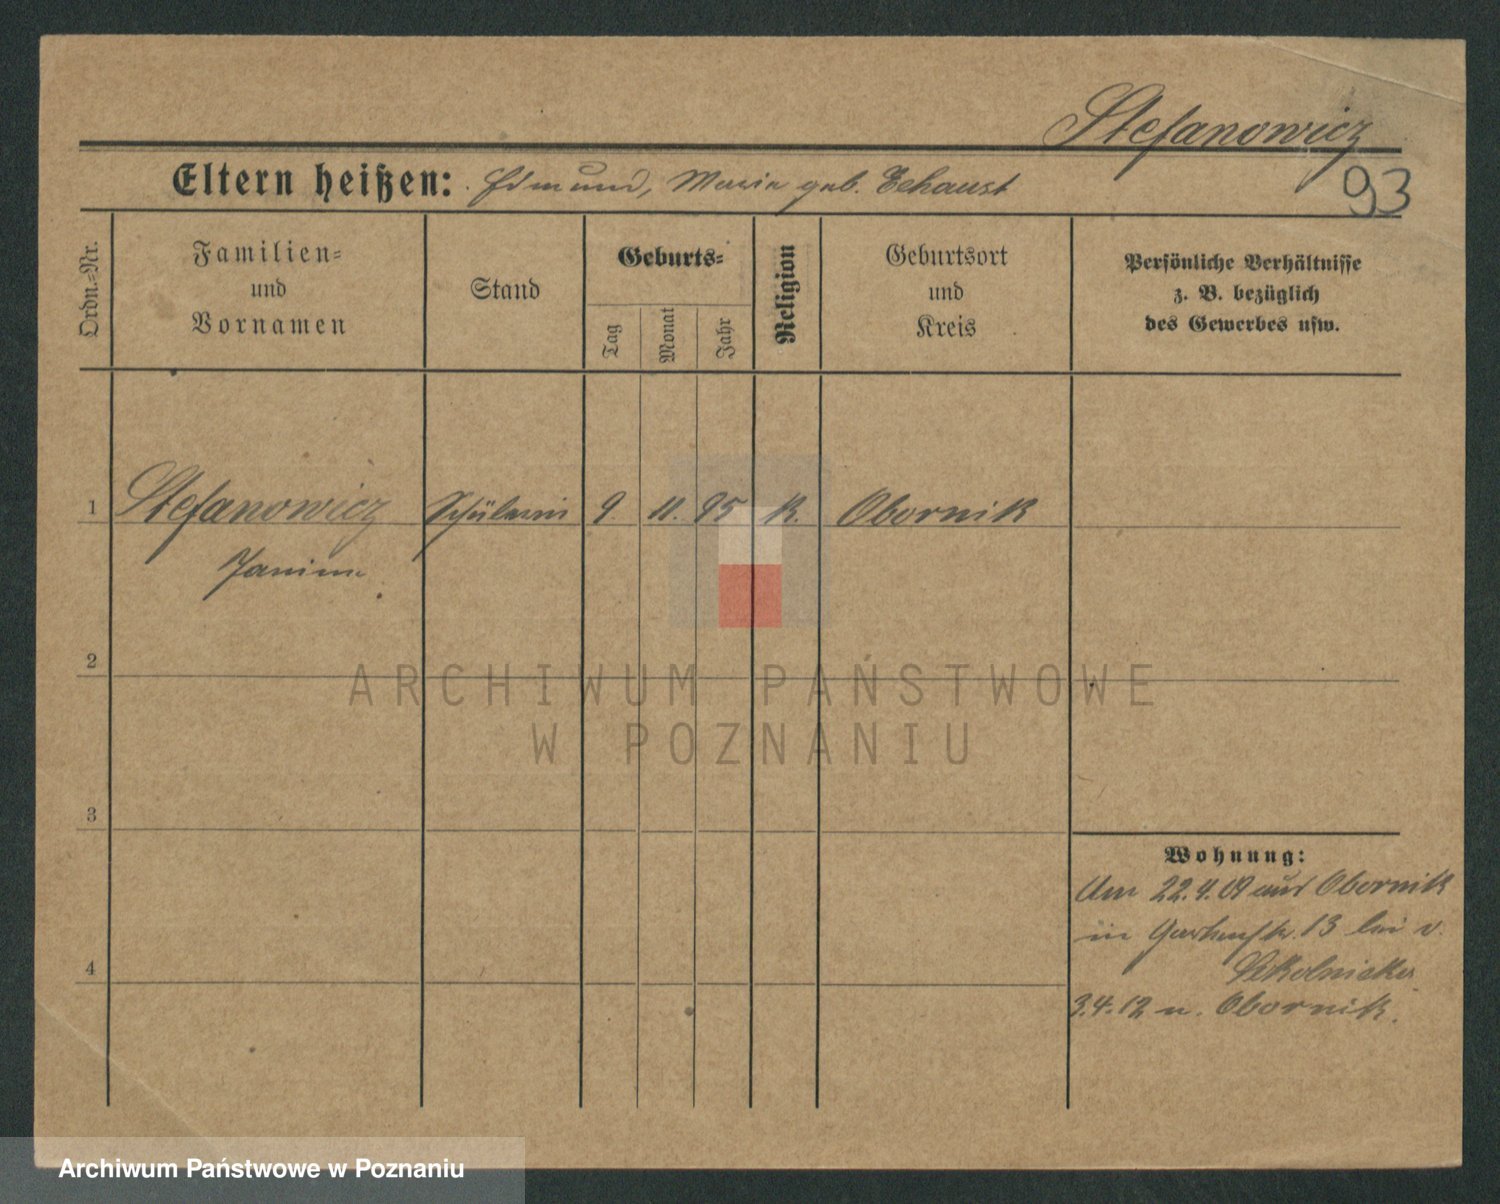 Stefanowicz
93
Eltern heißen: Edmund, Maria geb. Echaust
Ordn.-Nr.
Familien-
und
Vornamen
Stand
Geburts-
Tag
Monat
Jahr
Religion
Geburtsort
und
Kreis
Persönliche Verhältnisse
z. B. bezüglich
des Gewerbes usw.
1 Stefanowicz Schülerin 9. 11. 95 K. Obornik
Janina
2
3
4
Wohnung:
Am 22.4.09 aus Obornik
in Gartenstr. 13 bei v.
3.4.12 n. Obornik.
ARCHIWUM PAŃSTWOWE
W POZNANIU
Archiwum Państwowe w Poznaniu